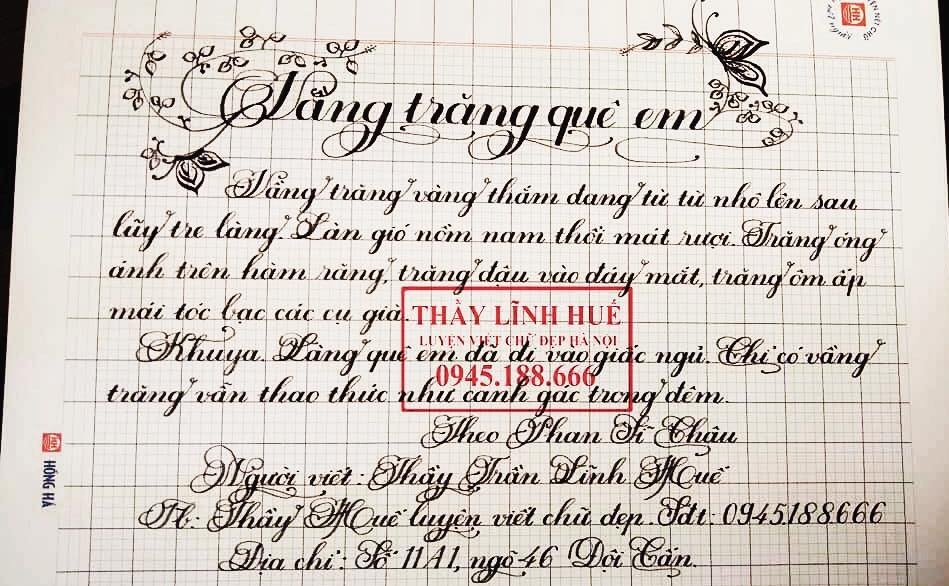 Vầng trăng quê em
Vầng trăng vàng thắm đang từ từ nhô lên sau
lũy tre làng. Làn gió nồm nam thổi mát rượi. Trăng óng
ánh trên hàm răng, trăng đậu vào đáy mắt, trăng ôm ấp
mái tóc bạc các cụ già.
THẦY LĨNH HUẾ
LUYỆN VIẾT CHỮ ĐẸP HÀ NỘI
0945.188.666
Khuya. Làng quê em đã đi vào giấc ngủ. Chỉ có vầng
trăng vẫn thao thức như canh gác trong đêm.
Theo Phan Sĩ Châu
Người viết: Thầy Trần Lĩnh Huế
Fb: Thầy Huế luyện viết chữ đẹp. Sđt: 0945.188.666
Địa chỉ: Số 11A1, ngõ 46 Đội Cấn.
HỒNG HÀ